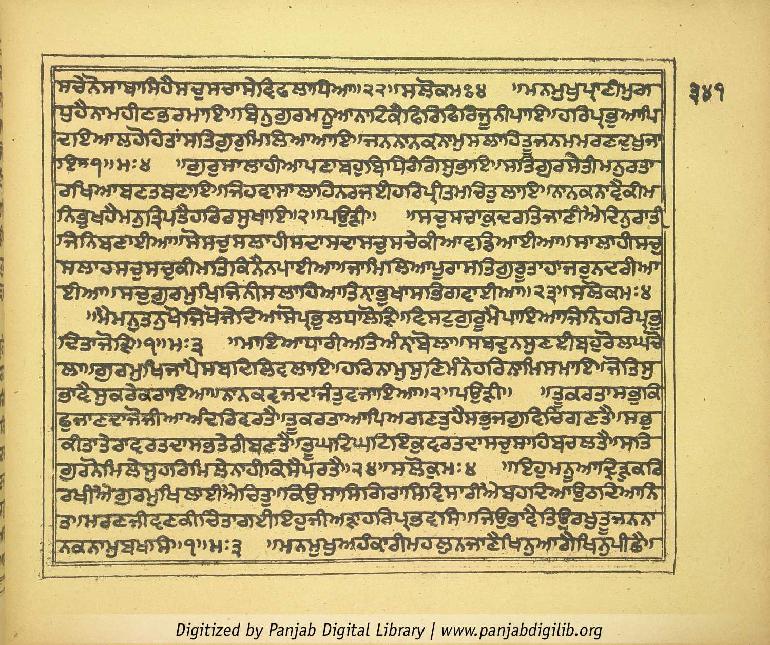 ਸਚੈਨੋਸਾਬਾਸਿਹੈਸਚੁਸਚਾਸੇਵਿਦਿਲਾਧਿਆ॥੨੨॥ਸਲੋਕਮਃ੪ ॥ਮਨਮੁਖੁਪ੍ਰਾਣੀਮੁਗ
ਧੁਹੈਨਾਮਹੀਣਭਰਮਾਇ॥ਬਿਨੁਗੁਰਮਨੂਆਨਾਟਿਕੈਫਿਰਿਫਿਰਿਜੂਨੀਪਾਇ॥ਹਰਿਪ੍ਰਭੁਆਪਿ
ਦਇਆਲਹੋਹਿਤਾਂਸਤਿਗੁਰੁਮਿਲਿਆਆਇ॥ਜਨਨਾਨਕਨਾਮੁਸਲਾਹਿਤੂਜਨਮਮਰਣਦੁਖੁਜਾ
ਇ॥੧॥ਮਃ੪ ॥ਗੁਰੁਸਾਲਾਹੀਆਪਣਾਬਹੁਬਿਧਿਰੰਗਿਸੁਭਾਇ॥ਸਤਿਗੁਰਸੇਤੀਮਨੁਰਤਾ
ਰਖਿਆਬਣਤਬਣਾਇ॥ਜਿਹਵਾਸਾਲਾਹਿਨਰਜਈਹਰਿਪ੍ਰੀਤਮਚਿਤੁਲਾਇ॥ਨਾਨਕਨਾਵੈਕੀਮ
ਨਿਭੁਖਹੈਮਨੁਤ੍ਰਿਪਤੈਹਰਿਰਸੁਖਾਇ॥੨॥ਪਉੜੀ॥ ॥ਸਚੁਸਚਾਕੁਦਰਤਿਜਾਣੀਐਦਿਨੁਰਾਤੀ
ਜਿਨਿਬਣਾਈਆ॥ਸੋਸਚੁਸਲਾਹੀਸਦਾਸਦਾਸਚੁਸਚੇਕੀਆਵਡਿਆਈਆ॥ਸਾਲਾਹੀਸਚੁ
ਸਲਾਹਸਚੁਸਚੁਕੀਮਤਿਕਿਨੈਨਪਾਈਆ॥ਜਾਮਿਲਿਆਪੂਰਾਸਤਿਗੁਰੂਤਾਹਾਜਰੁਨਦਰੀਆ
ਈਆ॥ਸਚੁਗੁਰਮੁਖਿਜਿਨੀਸਲਾਹਿਆਤਿਨਾਭੁਖਾਸਭਿਗਵਾਈਆ॥੨੩॥ਸਲੋਕਮਃ੪
॥ਮੈਮਨੁਤਨੁਖੋਜਿਖੋਜੇਦਿਆਸੋਪ੍ਰਭੁਲਧਾਲੋੜਿ॥ਵਿਸਟੁਗੁਰੂਮੈਪਾਇਆਜਿਨਿਹਰਿਪ੍ਰਭੁ
ਦਿਤਾਜੋੜਿ॥੧॥ਮਃ੩ ॥ਮਾਇਆਧਾਰੀਅਤਿਅੰਨਾਬੋਲਾ॥ਸਬਦੁਨਸੁਣਈਬਹੁਰੋਲਘਚੋ
ਲਾ॥ਗੁਰਮੁਖਿਜਾਪੈਸਬਦਿਲਿਵਲਾਇ॥ਹਰਿਨਾਮੁਸੁਣਿਮੰਨੇਹਰਿਨਾਮਿਸਮਾਇ॥ਜੋਤਿਸੁ
ਭਾਵੈਸੁਕਰੇਕਰਾਇਆ॥ਨਾਨਕਵਜਦਾਜੰਤੁਵਜਾਇਆ॥੨॥ਪਉੜੀ॥ ॥ਤੂਕਰਤਾਸਭੁਕਿ
ਛੁਜਾਣਦਾਜੋਜੀਆਅੰਦਰਿਵਰਤੈ॥ਤੂਕਰਤਾਆਪਿਅਗਣਤੁਹੈਸਭੁਜਗੁਵਿਚਿਗਣਤੈ॥ਸਭੁ
ਕੀਤਾਤੇਰਾਵਰਤਦਾਸਭਤੇਰੀਬਣਤੈ॥ਤੂਘਟਿਘਟਿਇਕੁਵਰਤਦਾਸਚੁਸਾਹਿਬਚਲਤੈ॥ਸਤਿ
ਗੁਰਨੋਮਿਲੇਸੁਹਰਿਮਿਲੇਨਾਹੀਕਿਸੈਪਰਤੈ॥੨੪॥ਸਲੋਕੁਮਃ੪ ॥ਇਹੁਮਨੂਆਦ੍ਰਿੜੁਕਰਿ
ਰਖੀਐਗੁਰਮੁਖਿਲਾਈਐਚਿਤੁ॥ਕਿਉਸਾਸਿਗਿਰਾਸਿਵਿਸਾਰੀਐਬਹਦਿਆਉਠਦਿਆਨਿ
ਤ॥ਮਰਣਜੀਵਣਕੀਚਿੰਤਾਗਈਇਹੁਜੀਅੜਾਹਰਿਪ੍ਰਭਵਸਿ॥ਜਿਉਭਾਵੈਤਿਉਰਖੁਤੂਜਨਨਾ
ਨਕਨਾਮੁਬਖਸਿ॥੧॥ਮਃ੩ ॥ਮਨਮੁਖੁਅਹੰਕਾਰੀਮਹਲੁਨਜਾਣੈਖਿਨੁਆਗੈਖਿਨੁਪੀਛੈ॥
੩੪੧
Digitized by Panjab Digital Library | www.panjabdigilib.org